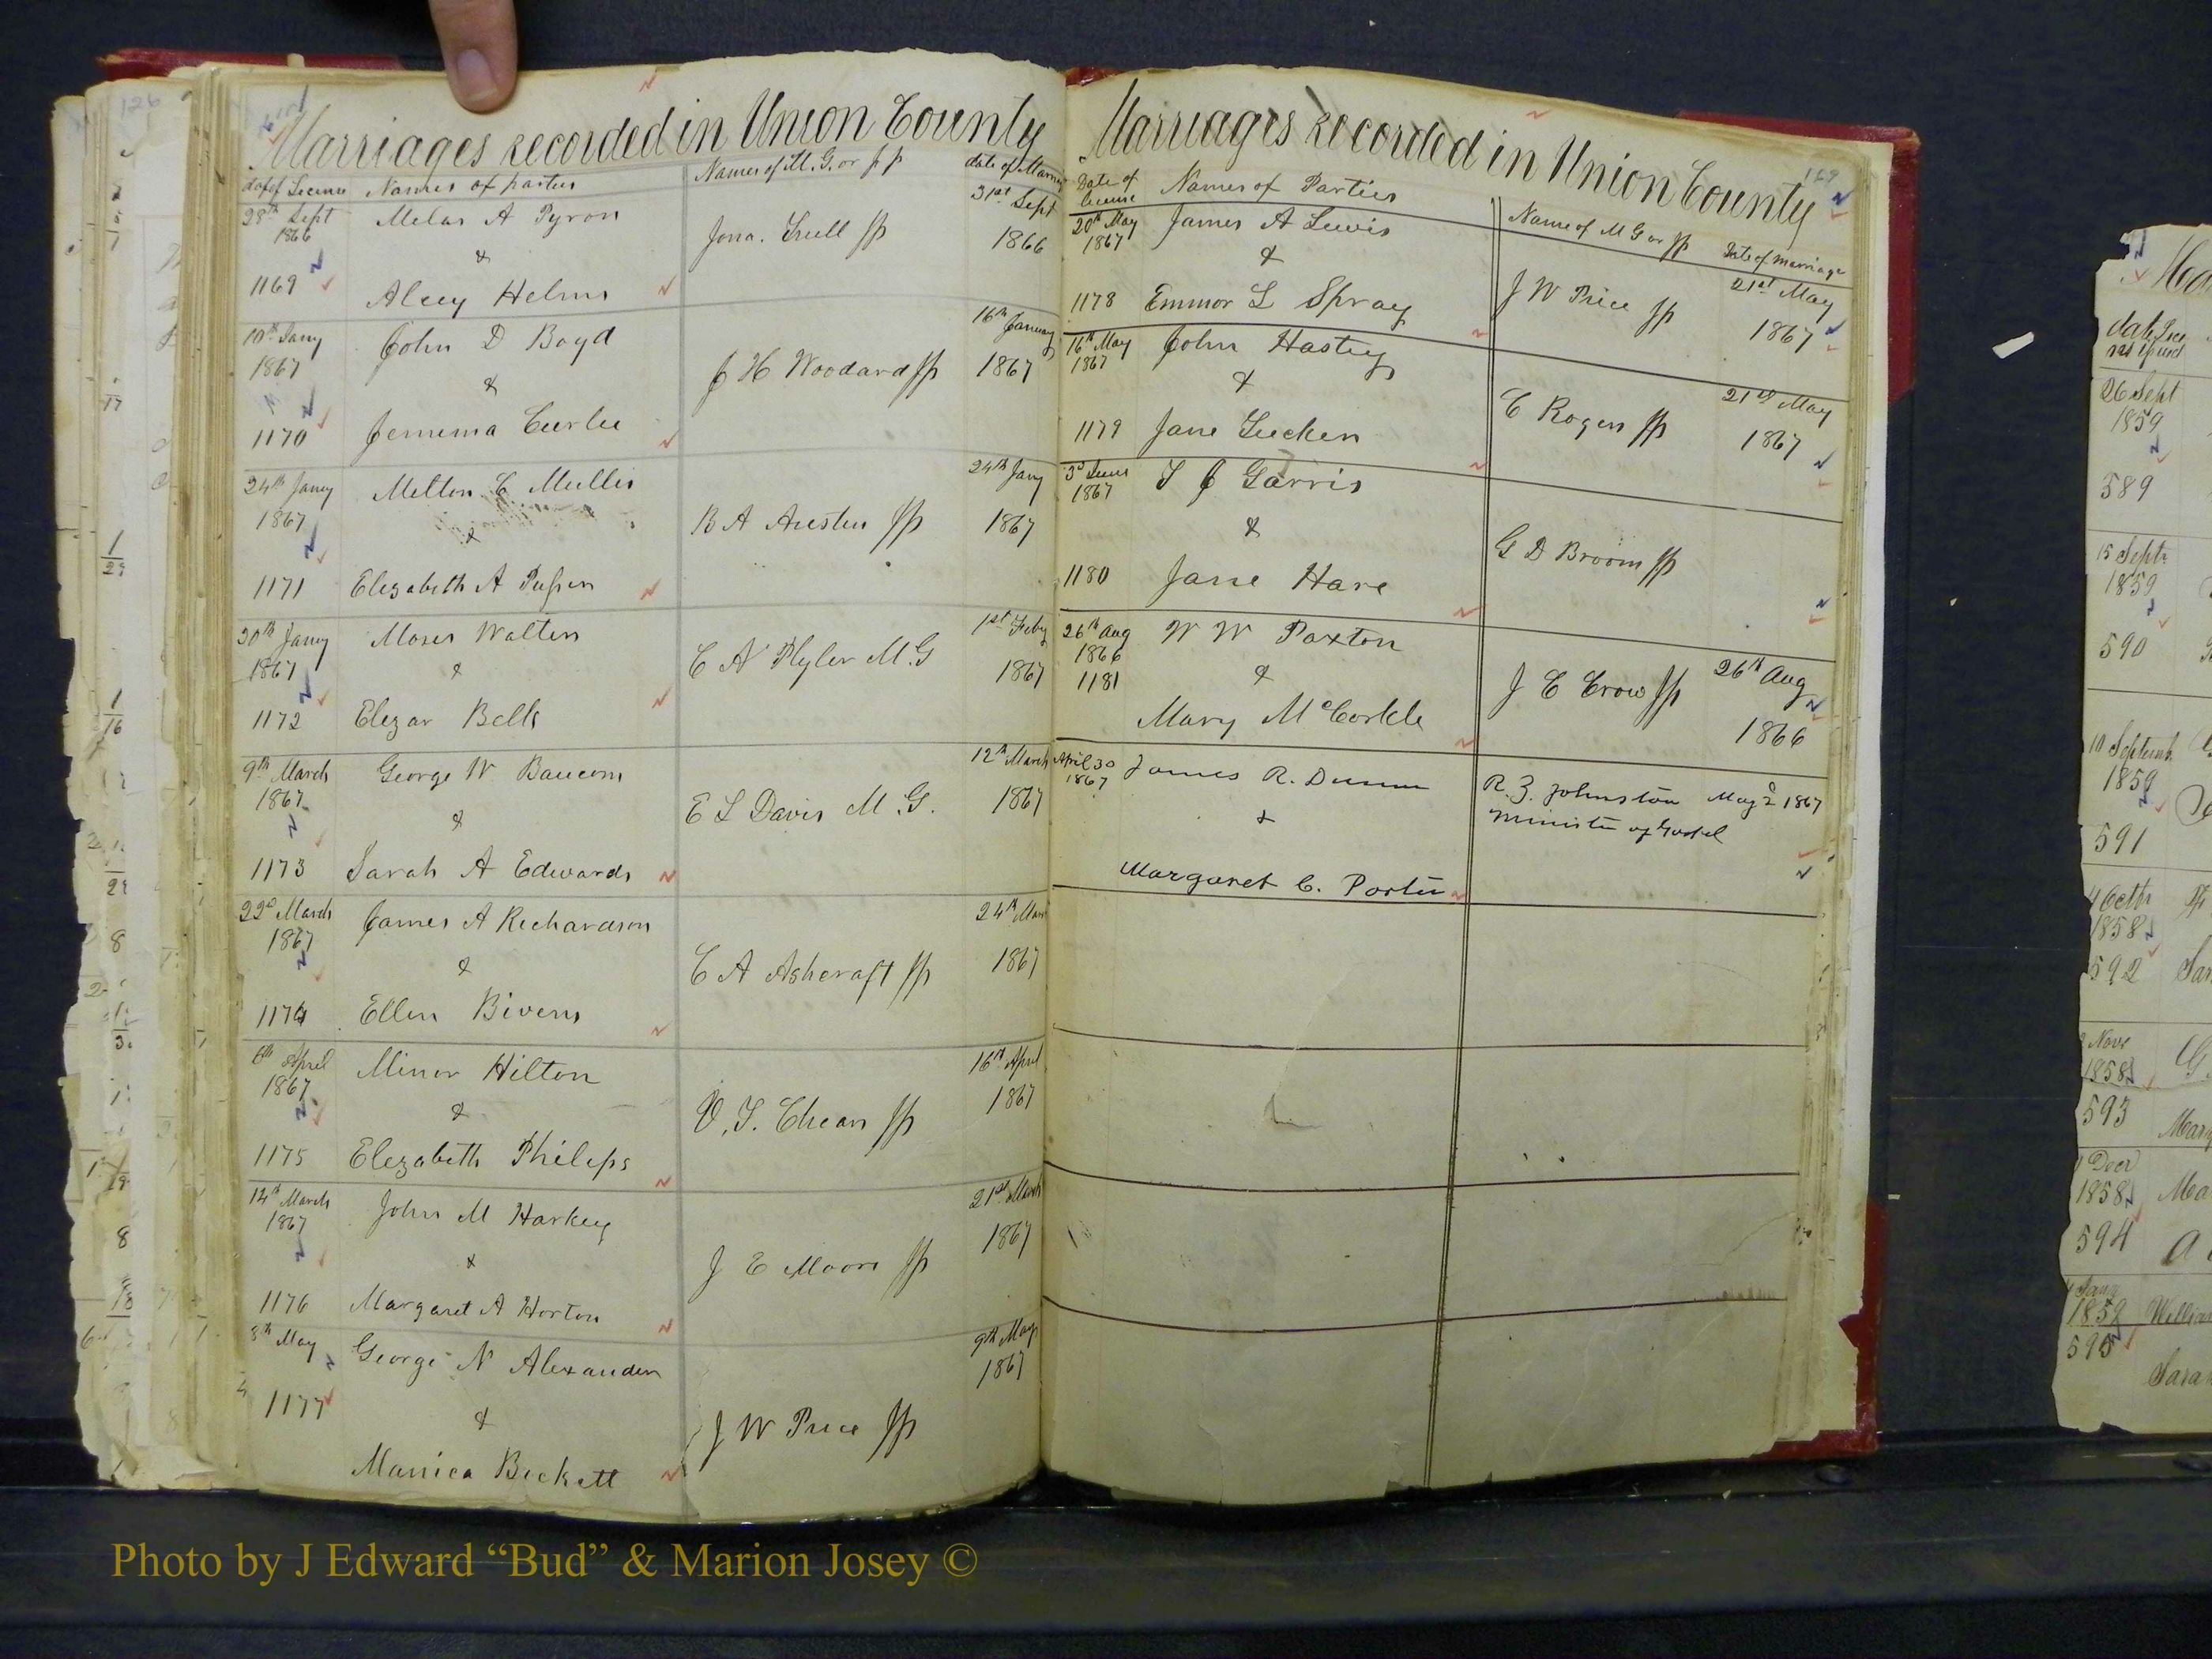 Marriages recorded in Union County
date of License Names of parties Names of M. G. or JP date of Marriage
28th Sept 1866
Melas A Pyron
&
1169 Alcey Helms
Jona. Trull JP
31st Sept
1866
10th Jany
1867
John D Boyd
&
1170 Jemima Curlee
J H Woodard JP
16th January
1867
24th Jany
1867
Melton C Mullis
&
1171 Elezabeth A
B A Austin JP
24th Jany
1867
Jany
1867
Moses Walters
&
1172 Elezar Belk
C A Plyler M.G
1st Feby
1867
9th March
1867
George W Baucom
&
1173 Sarah A Edwards
E L Davis M.G.
12th March
1867
22d March
1867
James A Richardson
&
1174 Ellen Bivens
C A Ashcraft JP
24th Mar
1867
6th April
1867
Minor Hilton
&
1175 Elezabeth Phileps
JP
16th April
1867
14th March
1867
John M Harkey
&
1176 Margaret A Horton
J E Moore JP
21st March
1867
8th May
George N Alexander
1177
&
Manica Beckett
J W Price JP
9th May
1867
Marriages recorded in Union County
169
Date of license Names of Parties Name of M G or JP Date of marriage
20th May
1867
James A Lewis
&
1178 Emmor L Spray
J W Price JP
21st May
1867
16th May
1867
John Hasty
&
1179 Jane
C Rogers JP
21st May
1867
3d June
1867
T J Garris
&
1180 Jane Hare
G D Broom JP
26th Aug
1866
1181
W W Paxton
&
Mary McCorkle
J C Crow JP
26th Aug
1866
April 30
1867
James R. Dunn
&
Margaret C. Porter
R. Z. Johnston May 2d 1867
Minister of Gospel
26 Sept
1859
589
15 Septr
1859
590
1859
591
Octr
1858
592
Nov
1858
593
Decr
1858
594
Jany
1859
595
Photo by J Edward “Bud” & Marion Josey ©